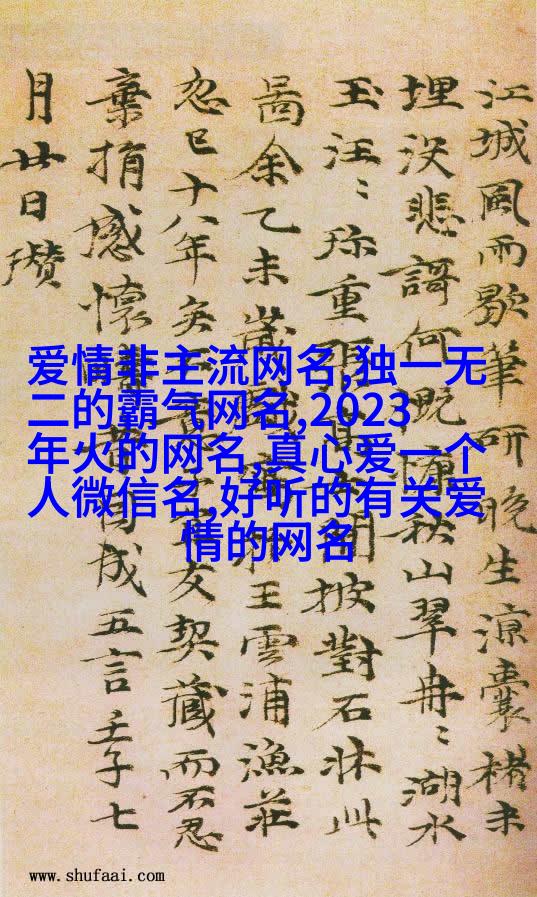 江城風雨歇筆研晚生涼囊楮未
埋没悲謌何慨慷秋山翠冉〻湖水
玉汪〻珎重張士閒披對石牀此
啚余乙未歲王雲浦漁莊
忽已十八年矣不友契藏而不忍
棄捐感懷昔因成五言壬子七
月廿日瓚
爱情非主流网名,独一无
二的霸气网名,2023
年火的网名,真心爱一个
人微信名,好听的有关爱
情的网名
www.shufaai.com